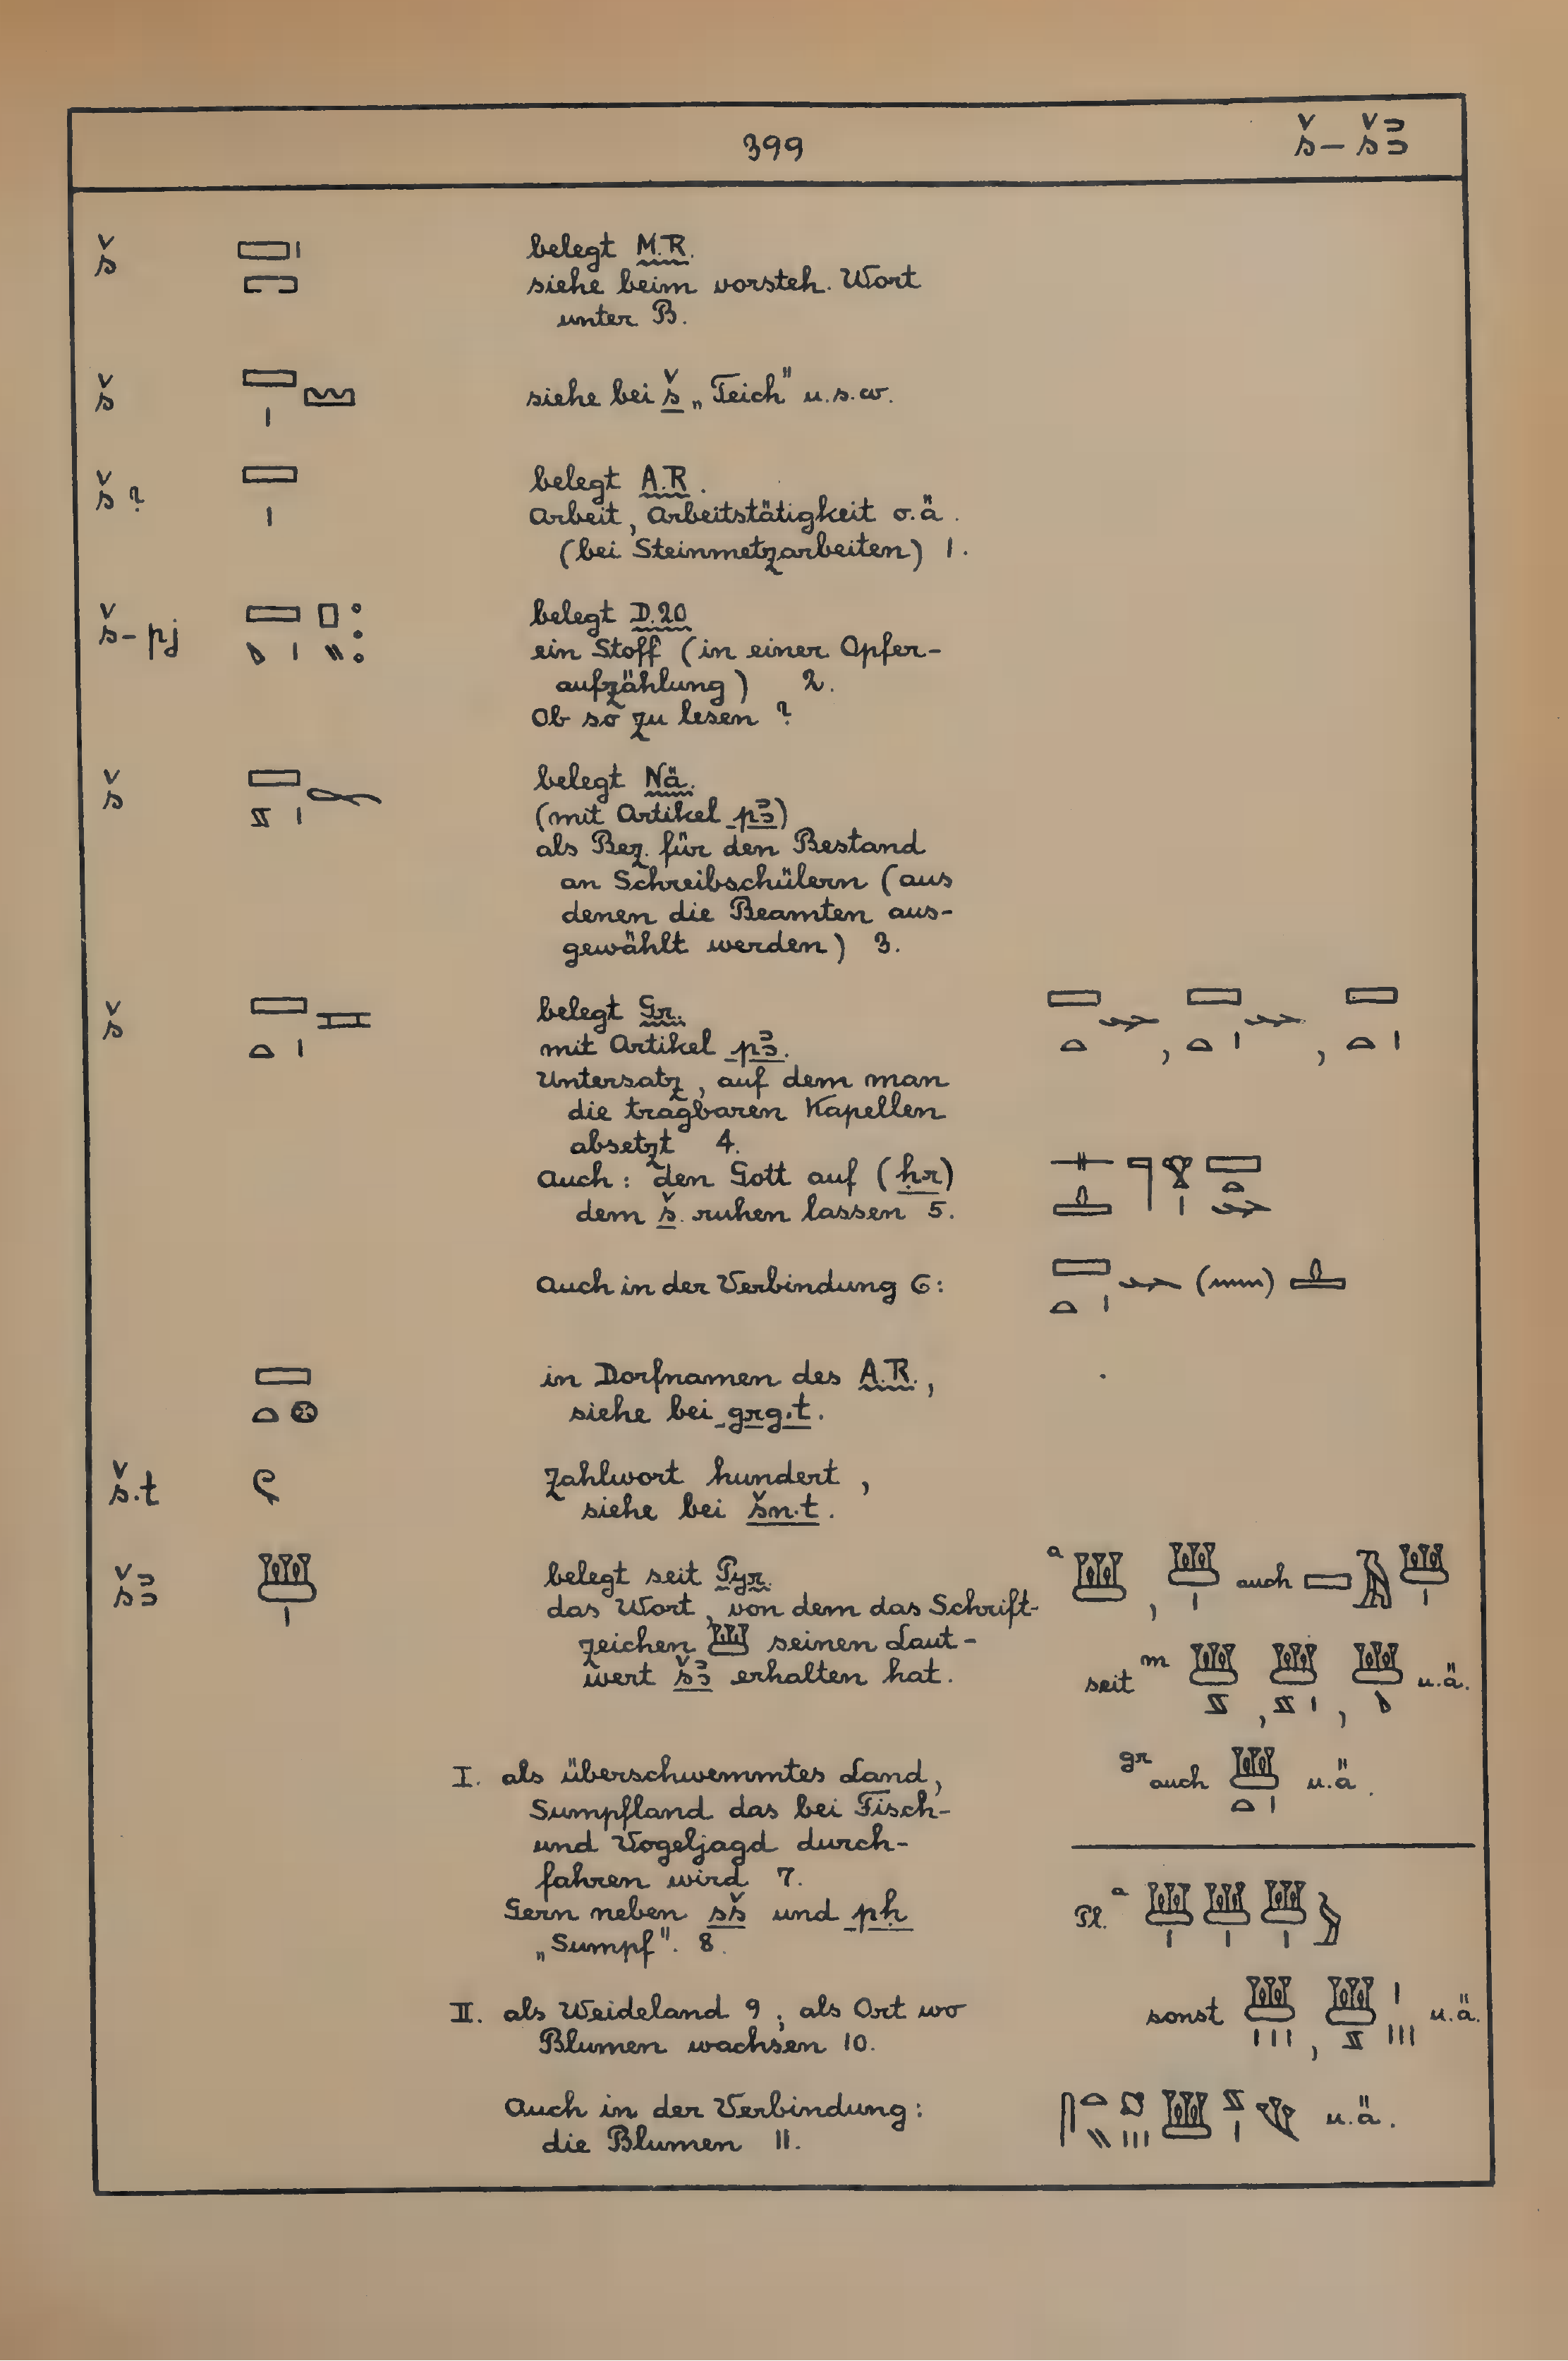 399
š – šꜣ
š 𓈙𓏤 belegt M.R.
𓉐 siehe beim vorsteh. Wort
unter B.
š siehe bei š „Teich" u.s.w.
š ? 𓈙𓏤 belegt A.R.
Arbeit, Arbeitstätigkeit o.ä.
(bei Steinmetzarbeiten) 1.
š – pj belegt D.20
ein Stoff (in einer Opfer-
aufzählung) 2.
Ob so zu lesen ?
š belegt Nä.
(mit Artikel pꜣ)
als Bez. für den Bestand
an Schreibschülern (aus
denen die Beamten aus-
gewählt werden) 3.
š belegt Gr.
mit Artikel pꜣ.
Untersatz, auf dem man
die tragbaren Kapellen
absetzt 4.
Auch: den Gott auf (ḥr)
dem š ruhen lassen 5.
Auch in der Verbindung 6:
𓈙 in Dorfnamen des A.R.,
𓏏𓊖 siehe bei grg.t.
š.t 𓍢 Zahlwort hundert,
siehe bei šn.t.
šꜣ 𓆷𓏤 belegt seit Pyr.
das Wort, von dem das Schrift-
zeichen 𓆷 seinen Laut-
wert šꜣ erhalten hat.
a 𓆷, 𓆷𓏤 auch 𓈙𓄿𓆷𓏤
seit m 𓆷𓏭, 𓆷𓏭𓏤, 𓆷 u.ä.
gr auch 𓆷𓏏𓏤 u.ä.
I. als überschwemmtes Land,
Sumpfland das bei Fisch-
und Vogeljagd durch-
fahren wird 7.
Gern neben sš und pḥ
„Sumpf". 8.
Pl. a 𓆷𓏤𓆷𓏤𓆷𓏤𓅱
II. als Weideland 9; als Ort wo
Blumen wachsen 10.
sonst 𓆷𓏥, u.ä.
Auch in der Verbindung:
die Blumen 11.
u.ä.